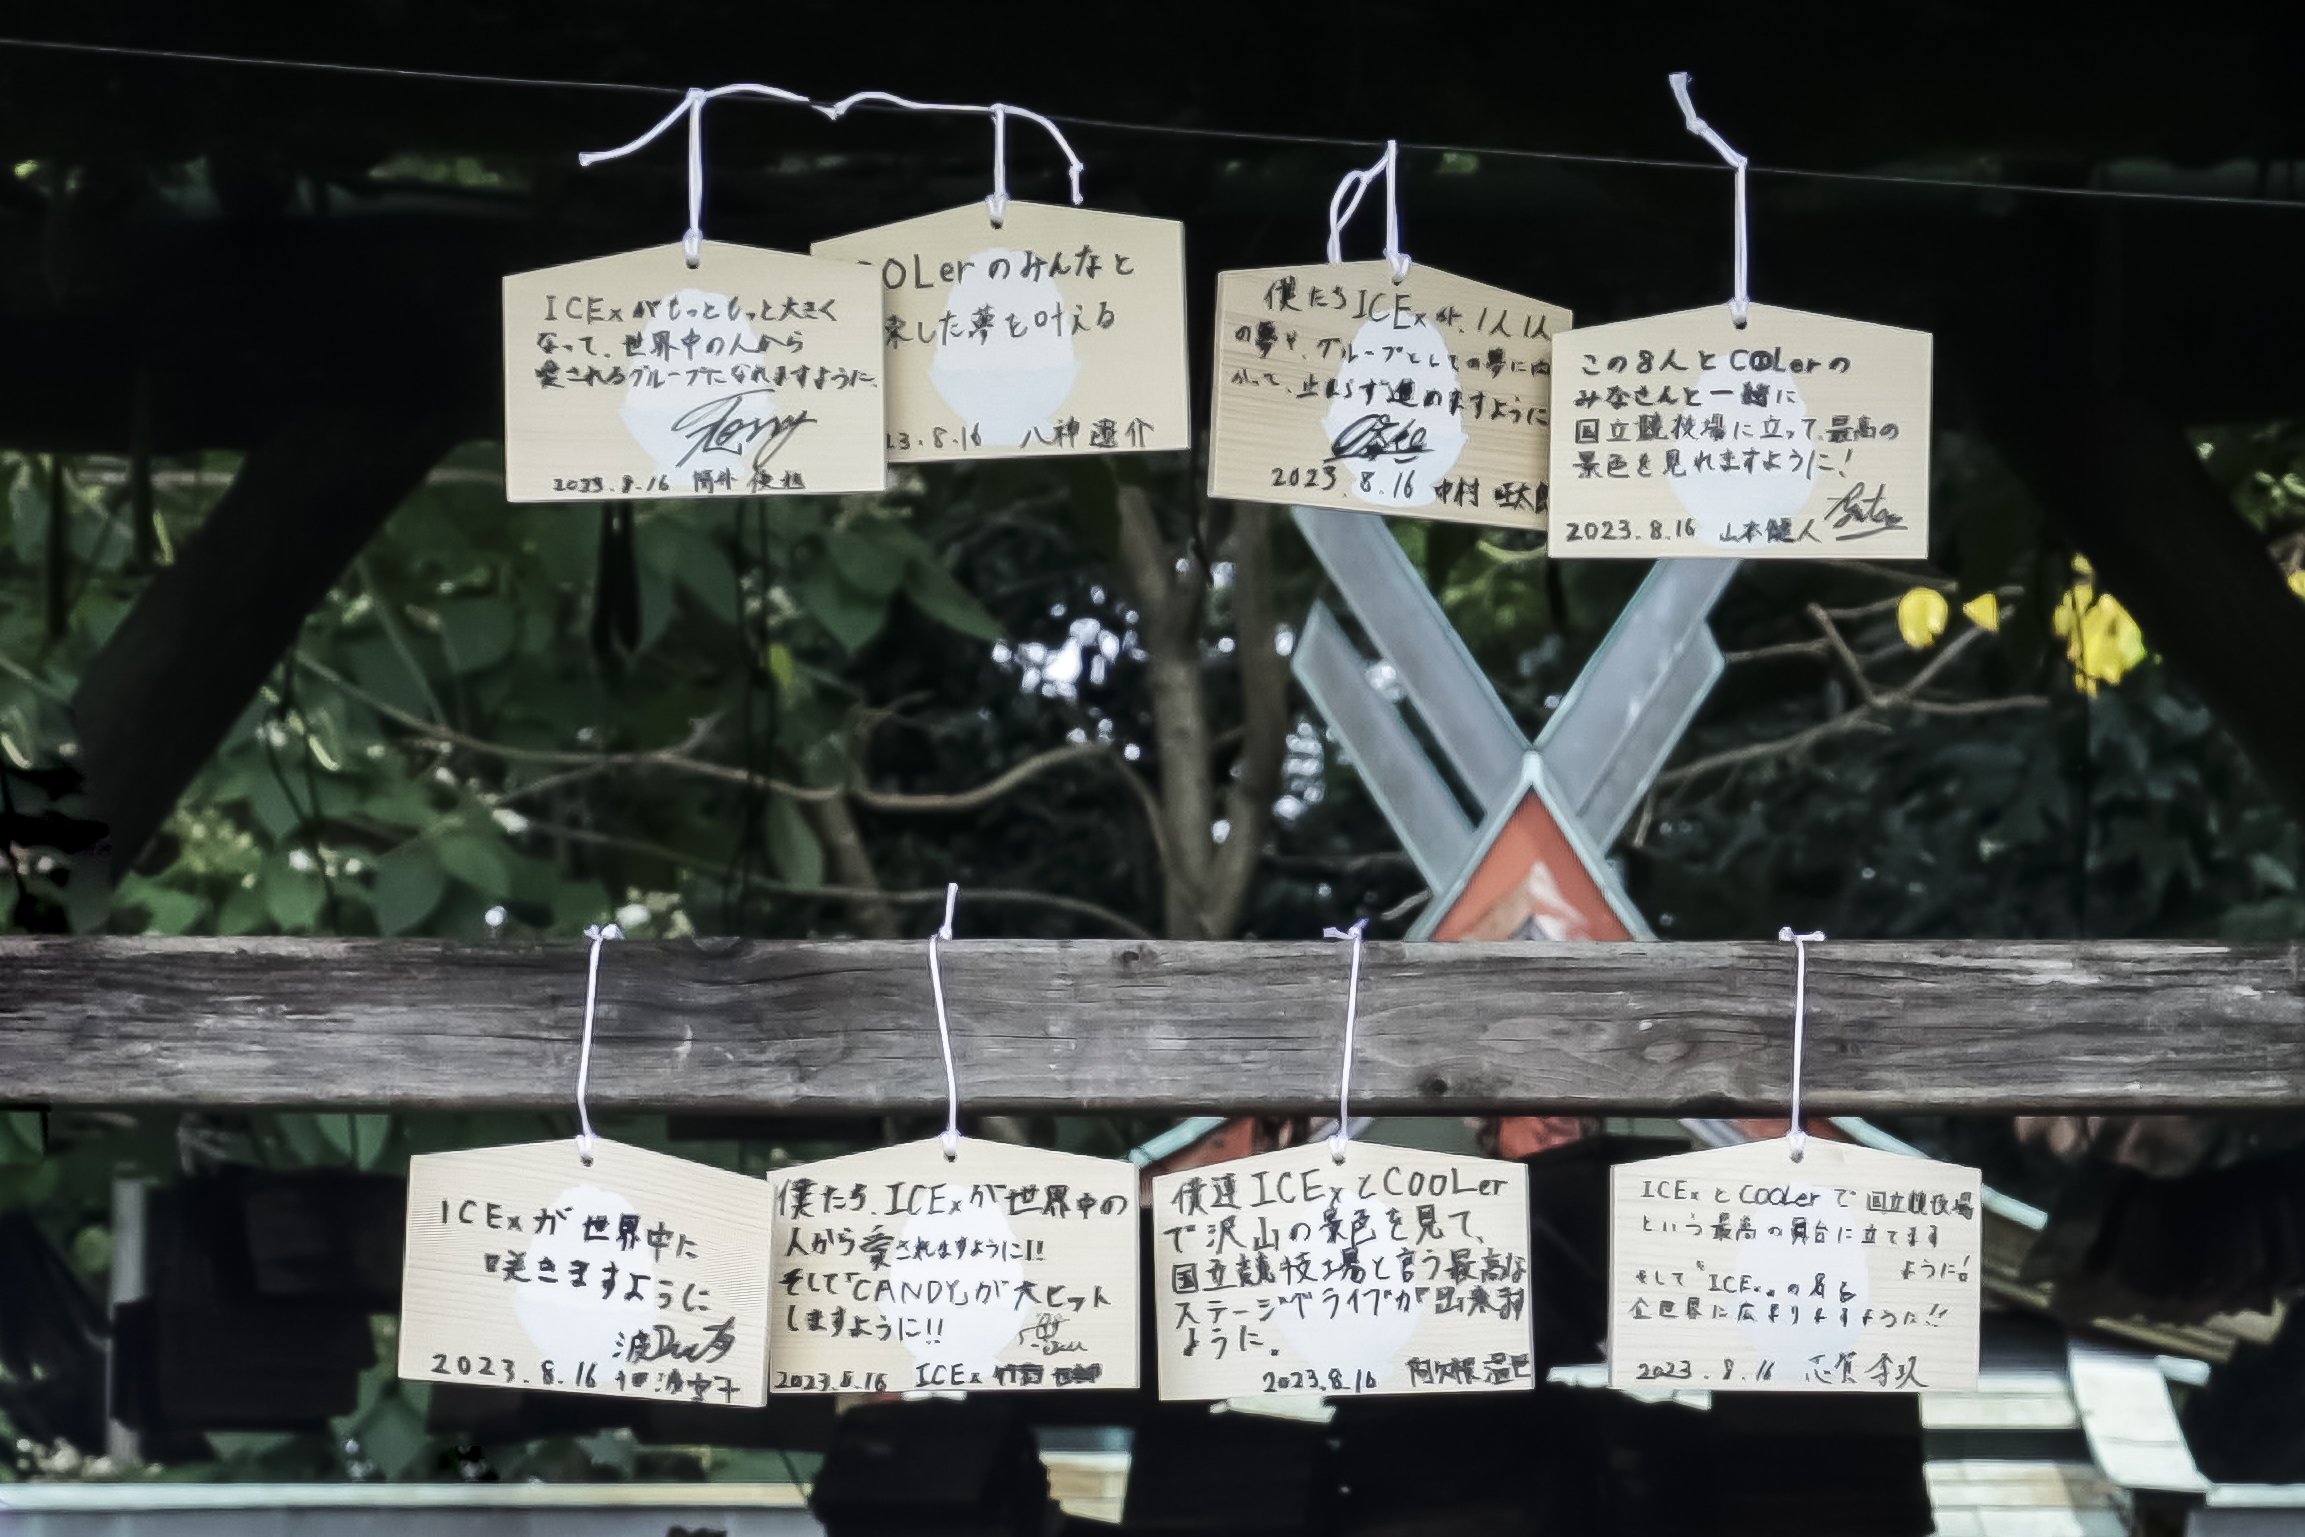 ICExがもっともっと大きく
なって、世界中の人から
愛されるグループになれますように
2023.8.16 筒井俊旭
OOLerのみんなと
束した夢を叶える
23.8.16 八神遼介
僕たちICExが、1人1人
の夢や、グループとしての夢に向
かって、止まらず進めますように
2023.8.16 中村旺太郎
この8人とCOOLerの
みなさんと一緒に
国立競技場に立って、最高の
景色を見れますように!
2023.8.16 山本健人
ICExが世界中に
咲きますように
2023.8.16
僕たち、ICExが世界中の
人から愛されますように!!
そして「CANDY」が大ヒット
しますように!!
2023.8.16 ICEx
僕達ICExとCOOLer
で沢山の景色を見て、
国立競技場と言う最高な
ステージでライブが出来ます
ように。
2023.8.16 阿久根温世
ICExとCOOLerで国立競技場
という最高の舞台に立てます
ように!
そして"ICEx"の名を
全世界に広まりますように!!
2023.8.16 志賀李玖